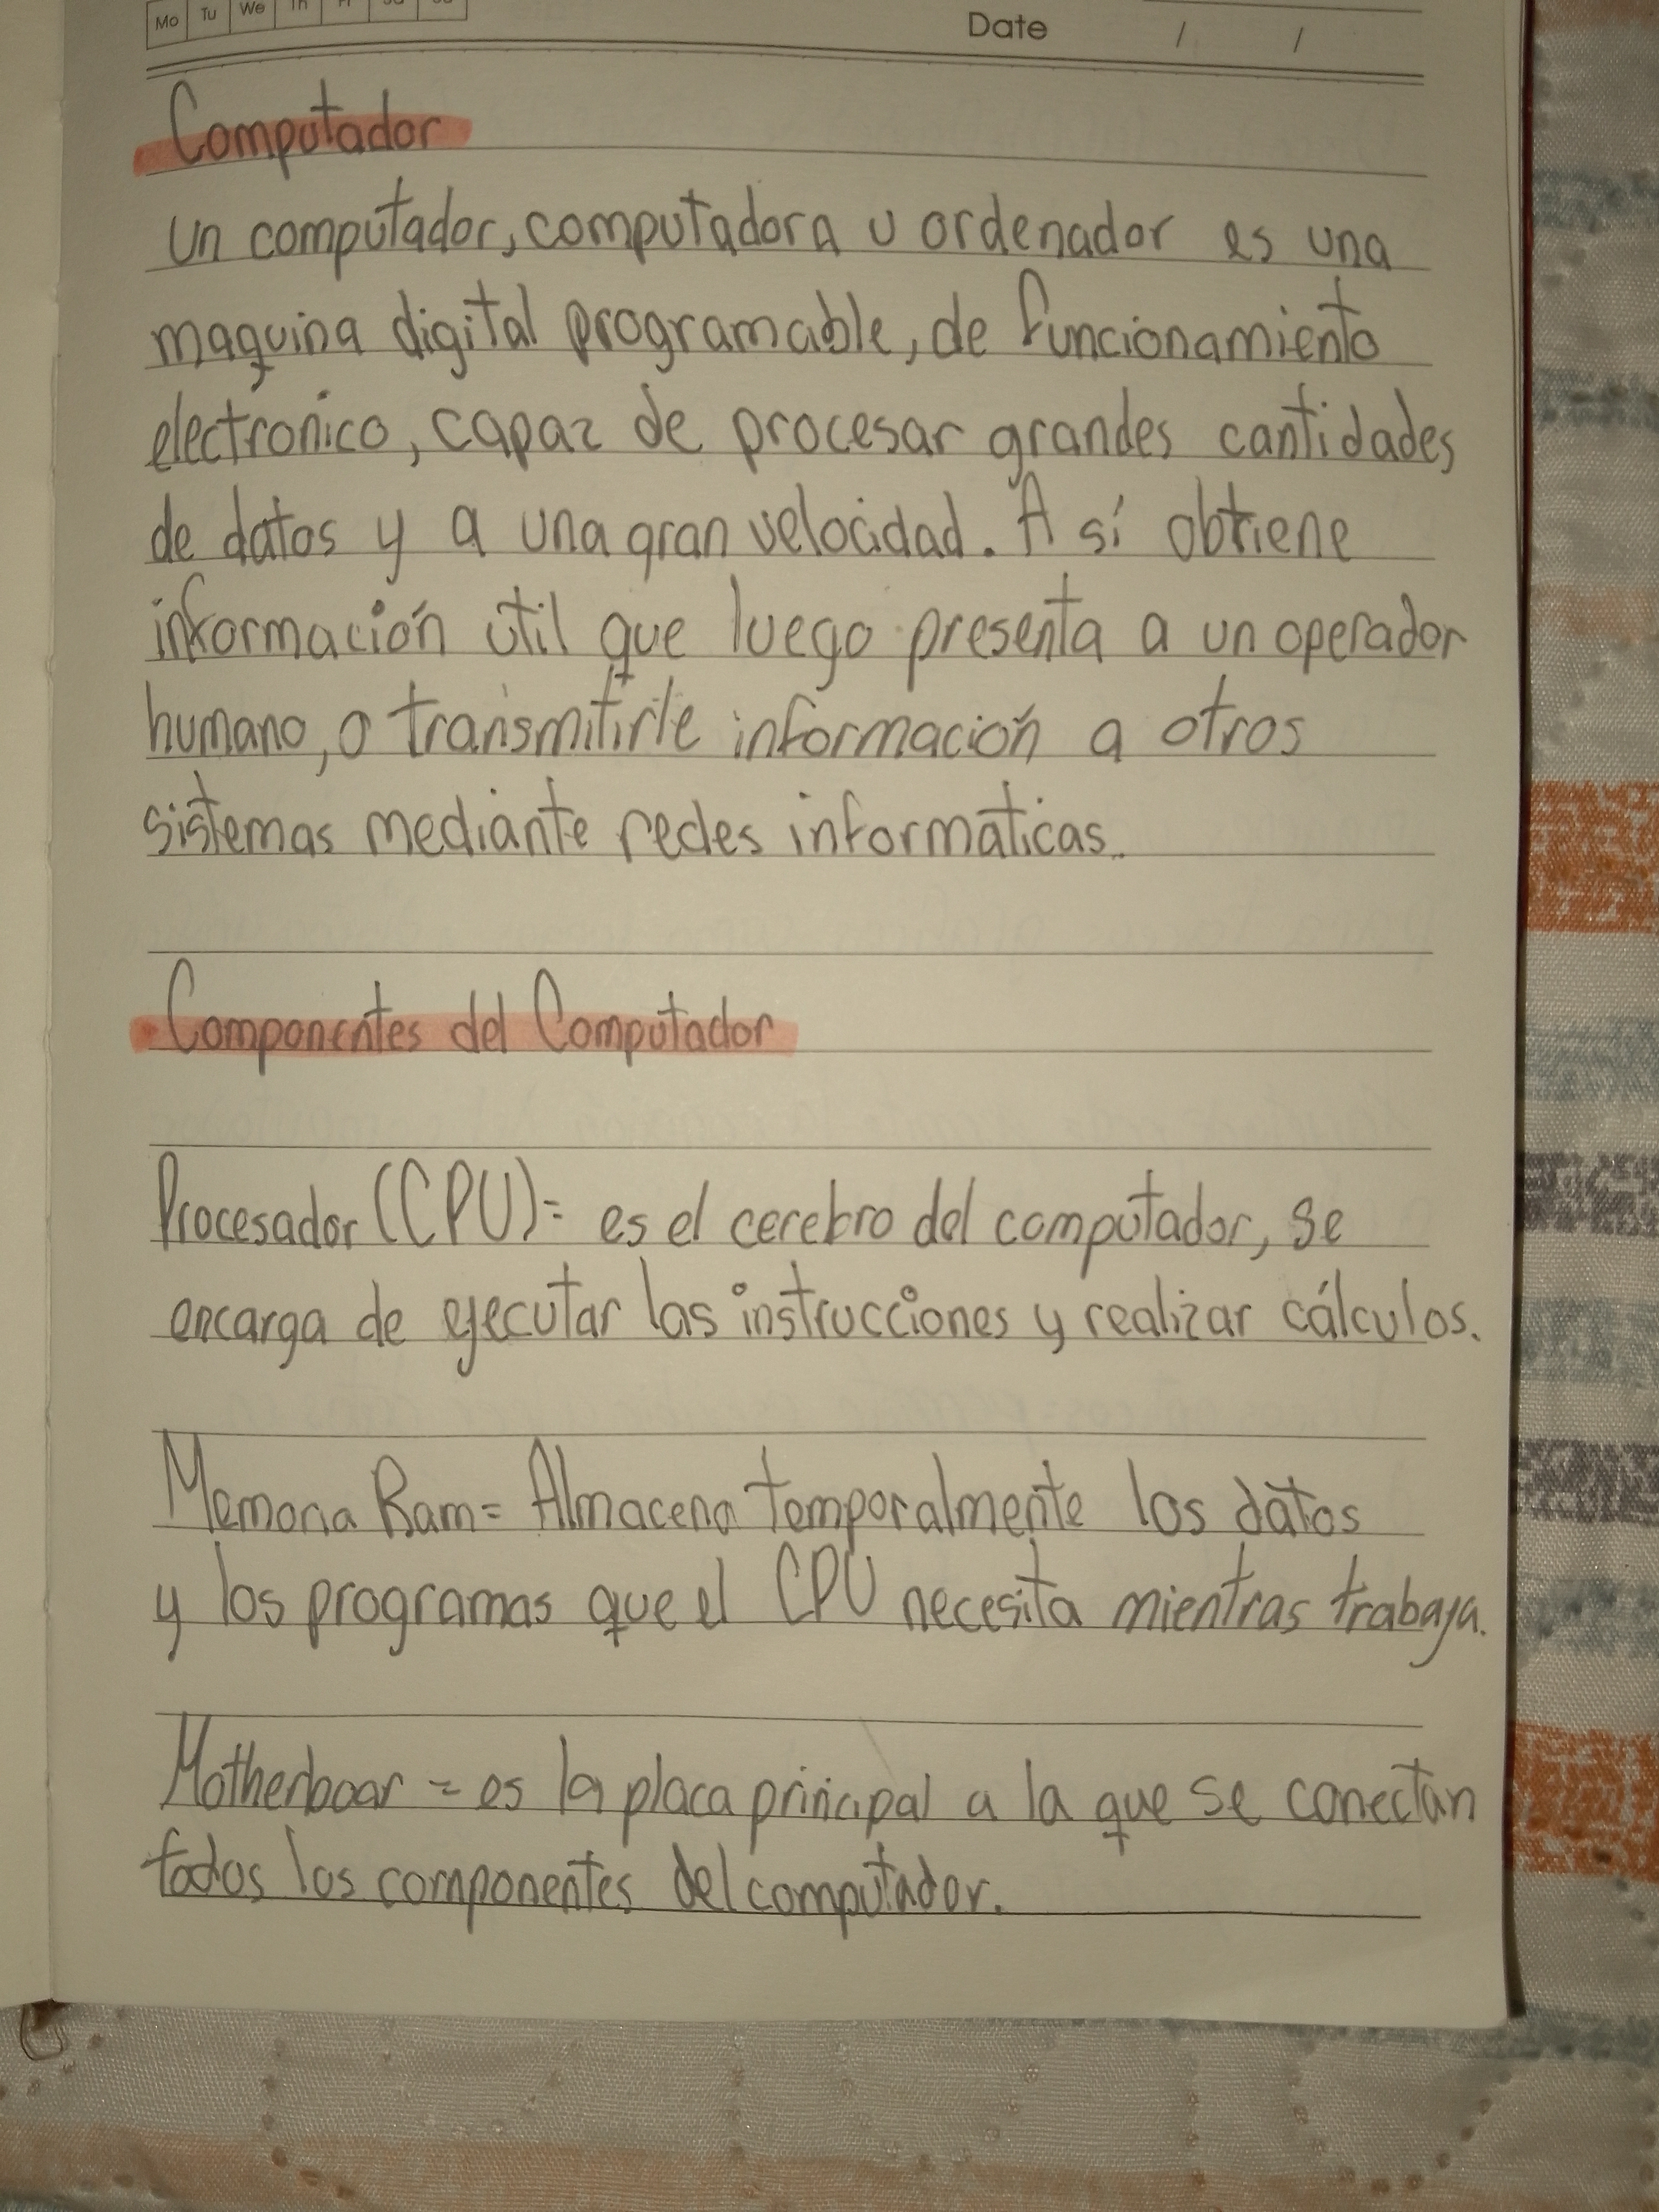 Mo Tu We Th Fr Sa Su
Date / /
Computador
un computador, computadora u ordenador es una
maquina digital programable, de funcionamiento
electronico, capaz de procesar grandes cantidades
de datos y a una gran velocidad. A sí obtiene
información útil que luego presenta a un operador
humano, o transmitirle información a otros
sistemas mediante redes informaticas.
Componentes del Computador
Procesador (CPU)= es el cerebro del computador, se
encarga de ejecutar las instrucciones y realizar cálculos.
Memoria Ram= Almacena temporalmente los datos
y los programas que el CPU necesita mientras trabaja.
Motherboar = es la placa principal a la que se conectan
todos los componentes del computador.